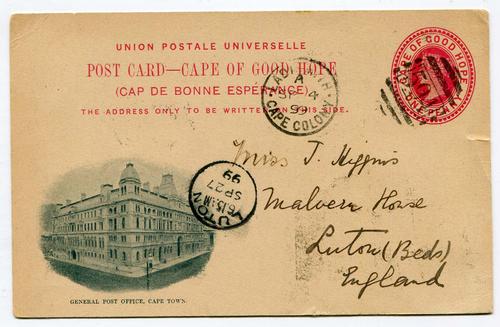 UNION POSTALE UNIVERSELLE
POST CARD—CAPE OF GOOD HOPE
(CAP DE BONNE ESPÉRANCE)
THE ADDRESS ONLY TO BE WRITTEN ON THIS SIDE.
CAPE OF GOOD HOPE
ONE PENNY
LADISMITH
A
SP 4
99
CAPE COLONY
LUTON
6.15AM
SP 27
99
Miss J. Higgins
Malvern House
Luton (Beds)
England
GENERAL POST OFFICE, CAPE TOWN.